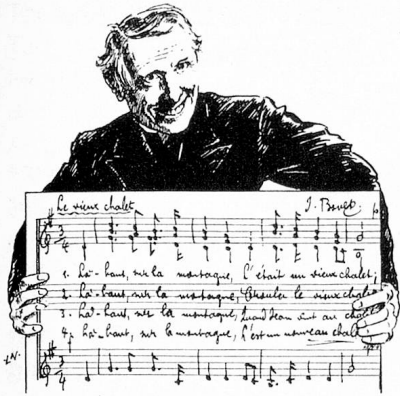 Le vieux chalet J. Bovet
1. Là-haut, sur la montagne, l'était un vieux chalet;
2. Là-haut, sur la montagne, Croula le vieux chalet;
3. Là-haut, sur la montagne, Quand Jean vint au chalet
4. Là-haut, sur la montagne, l'est un nouveau chalet